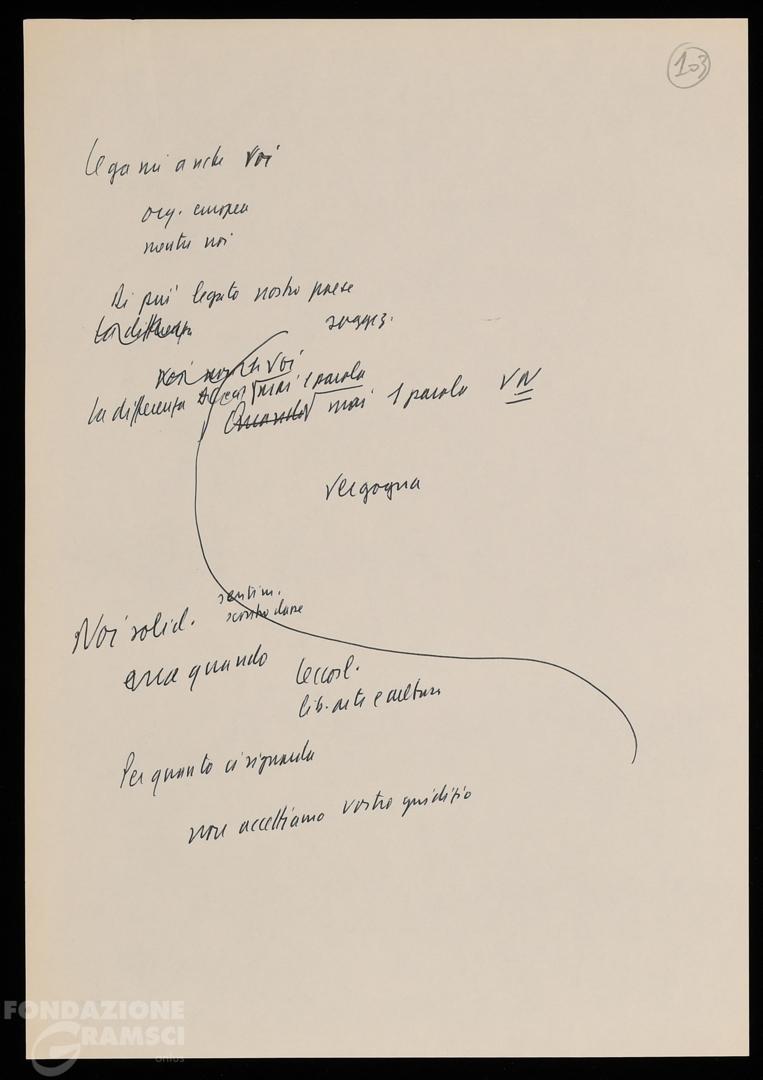 103
Legami anche voi
org. europea
mentre noi
Di più legato nostro paese
La differenza
soggez.
noi mentre voi
La differenza mai 1 parola
Quando mai 1 parola VN
Vergogna
sentim.
Noi solid.
ecc.
lib. arte e cultura
Per quanto ci riguarda
non accettiamo vostro giudizio
FONDAZIONE
GRAMSCI
onlus